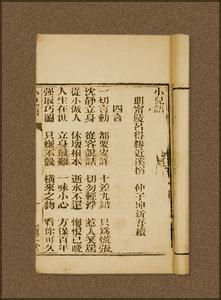 小兒語
明甯陵呂得勝近溪撰 仲子坤新吾續
四言
一切言動 都要安詳 十差九錯 只爲慌張
沈靜立身 從容說話 切勿輕浮 惹人笑罵
從小做人 休壞根本 近水不遠 悔恨已晚
人生在世 立身最難 一味小心 方保百年
強取巧圖 只嫌不彀 橫來之物 看你可久